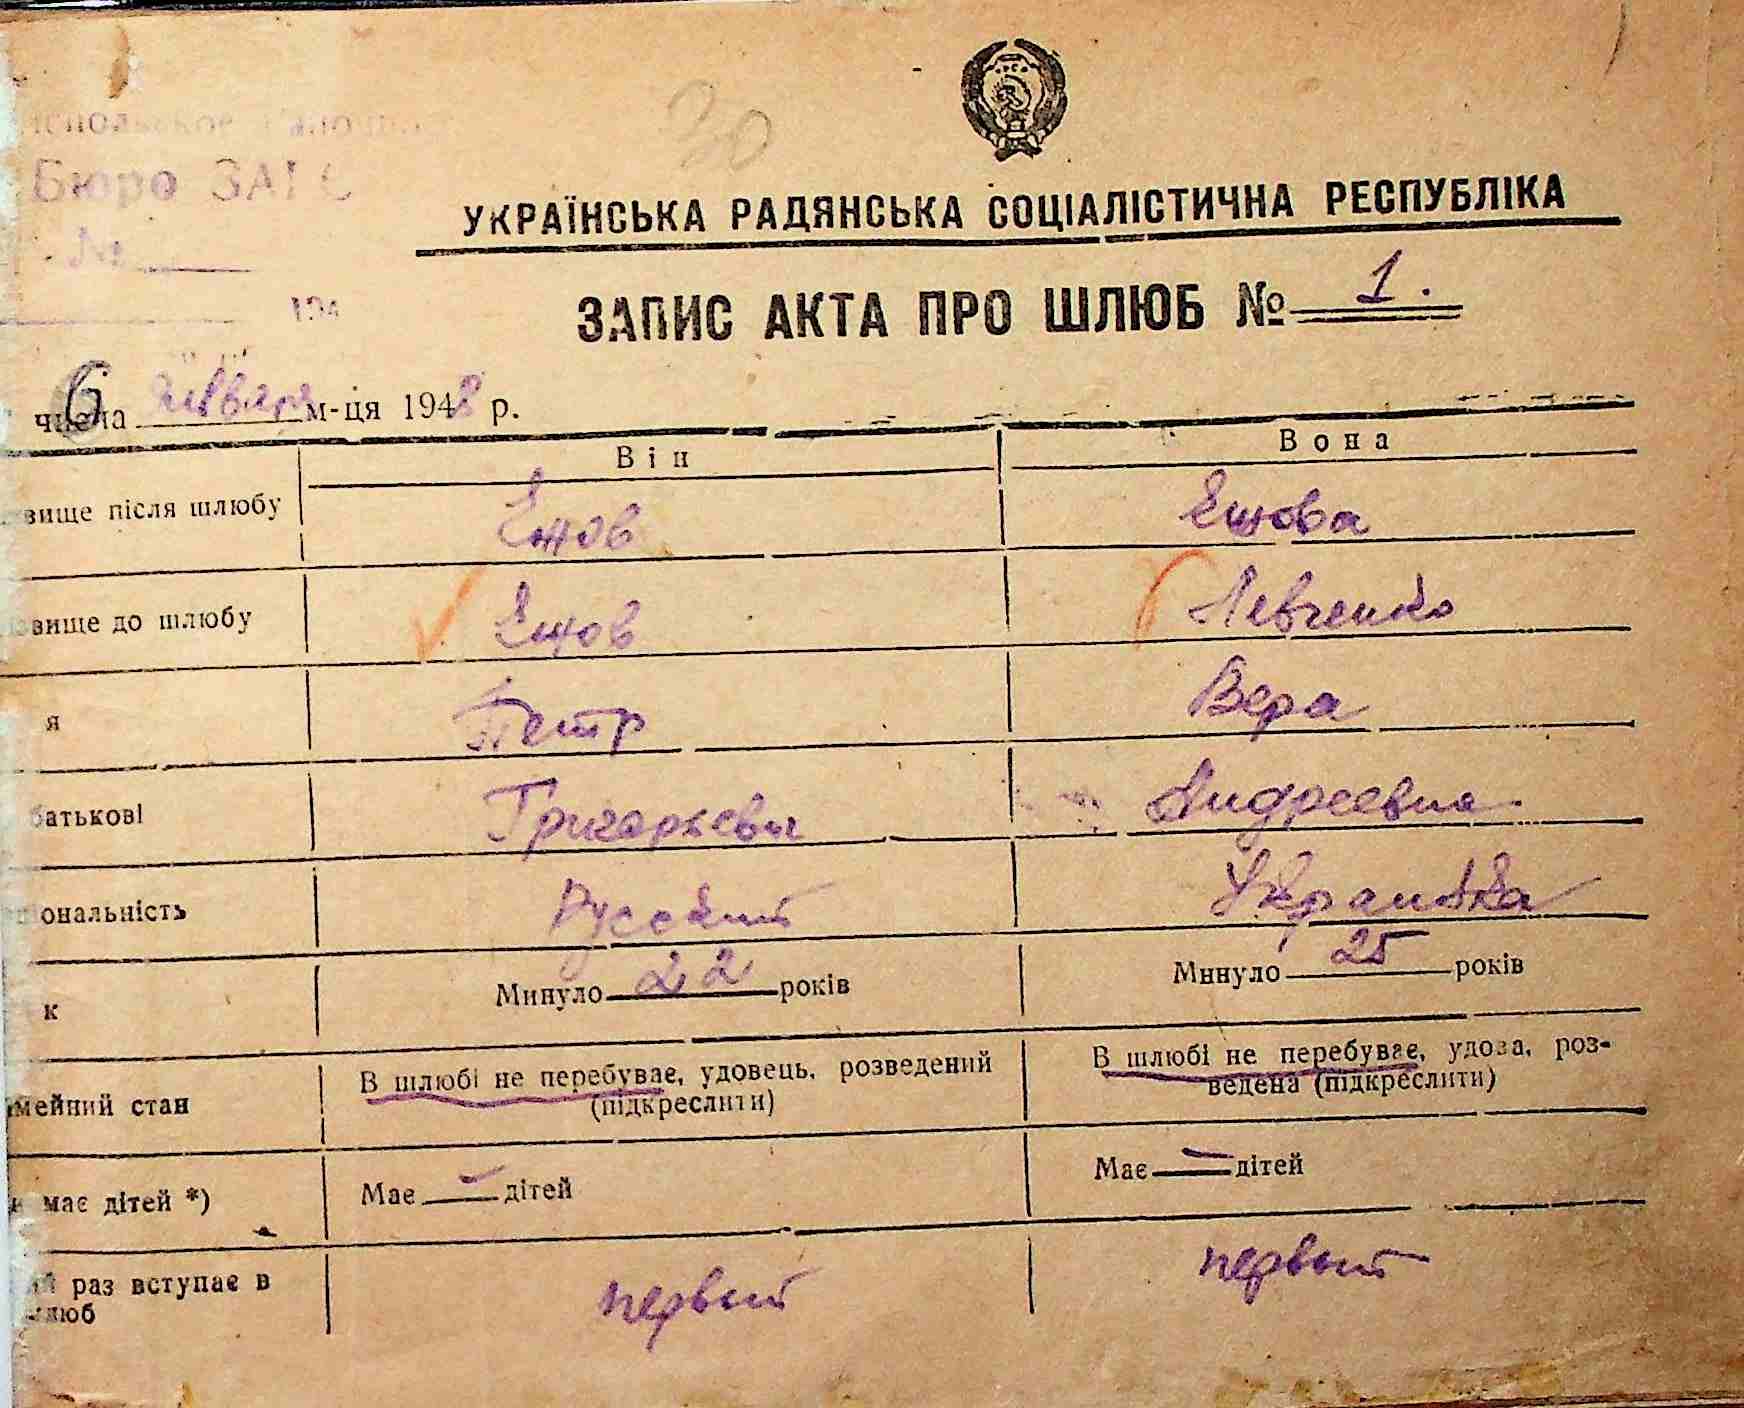 30
Бюро ЗАГС
№
194
УКРАЇНСЬКА РАДЯНСЬКА СОЦІАЛІСТИЧНА РЕСПУБЛІКА
ЗАПИС АКТА ПРО ШЛЮБ № 1.
6 числа января м-ця 1948 р.
Він Вона
звище після шлюбу Ежов Ежова
звище до шлюбу Ежов Левченко
я Петр Вера
батькові Григорьевич Андреевна
ціональність Русский Украинка
к Минуло 22 років Минуло 25 років
імейний стан В шлюбі не перебуває, удовець, розведений (підкреслити) В шлюбі не перебуває, удова, роз-
ведена (підкреслити)
має дітей *) Має — дітей Має — дітей
ий раз вступає в шлюб первый первый